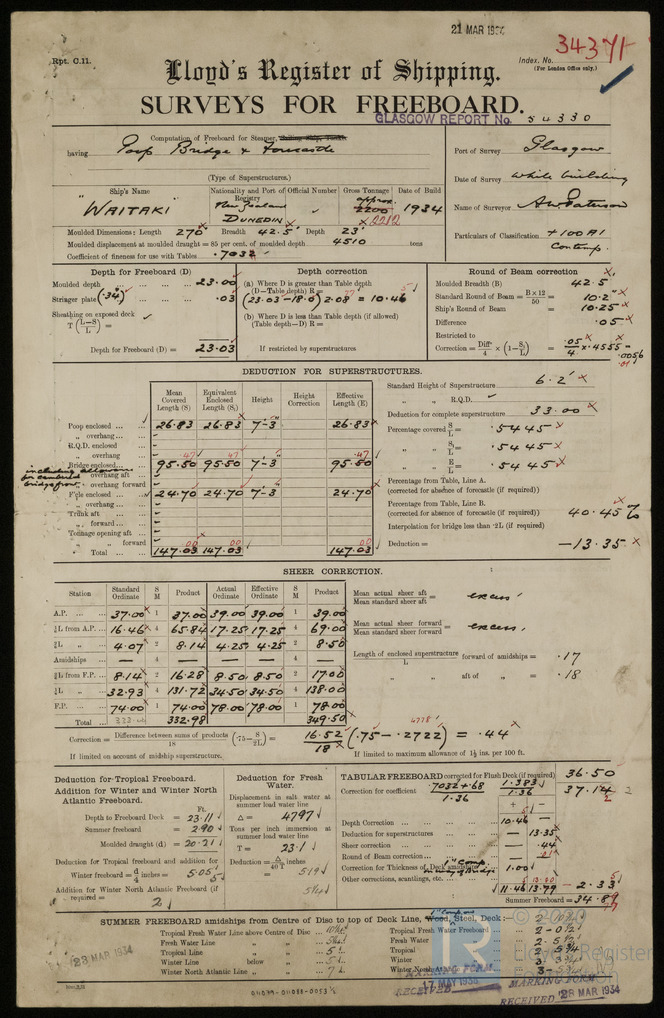 21 MAR 1934
34371
Rpt. C.11.
Index. No.
(For London Office only.)
Lloyd's Register of Shipping.
SURVEYS FOR FREEBOARD.
GLASGOW REPORT No. 54330
Computation of Freeboard for Steamer, Sailing Ship, Tanker
having Poop Bridge & Forecastle
(Type of Superstructures.)
Port of Survey Glasgow
Date of Survey while building
Name of Surveyor
Particulars of Classification +100A1
Contemp.
Ship's Name
Nationality and Port of Registry
Official Number
Gross Tonnage
Date of Build
"WAITAKI"
New Zealand
DUNEDIN
approx.
2200
2212
1934
Moulded Dimensions: Length 270' Breadth 42.5' Depth 23'
Moulded displacement at moulded draught = 85 per cent. of moulded depth 4510 tons
Coefficient of fineness for use with Tables .7032
Depth for Freeboard (D)
Moulded depth 23.00
Stringer plate (.34") .03
Sheathing on exposed deck
T (L-S/L) =
Depth for Freeboard (D) = 23.03
Depth correction
(a) Where D is greater than Table depth
(D-Table depth) R =
(23.03-18.0) 2.08 = 10.46
(b) Where D is less than Table depth (if allowed)
(Table depth-D) R =
If restricted by superstructures
Round of Beam correction
Moulded Breadth (B) 42.5
Standard Round of Beam = B×12/50 = 10.2"
Ship's Round of Beam = 10.25
Difference .05
Restricted to
Correction = Diff/4 × (1-S₁/L) = .05/4 × .4555 = .0056
.01
DEDUCTION FOR SUPERSTRUCTURES.
Mean Covered Length (S)
Equivalent Enclosed Length (S₁)
Height
Height Correction
Effective Length (E)
Poop enclosed 26.83 26.83 7'-3" 26.83
" overhang
R.Q.D. enclosed
" overhang
Bridge enclosed 95.50 95.50 7'-3 95.50
including allowance
for cambered
bridge front
" overhang aft
" overhang forward
F'cle enclosed 24.70 24.70 7'-3 24.70
" overhang
Trunk aft
" forward
Tonnage opening aft
" " forward
Total 147.03 147.03 147.03
Standard Height of Superstructure 6.2'
" " R.Q.D.
Deduction for complete superstructure 33.00
Percentage covered S/L = .5445
" " S₁/L = .5445
" " E/L = .5445
Percentage from Table, Line A.
(corrected for absence of forecastle (if required))
Percentage from Table, Line B.
(corrected for absence of forecastle (if required)) 40.45%
Interpolation for bridge less than .2L (if required)
Deduction = -13.35
SHEER CORRECTION.
Station
Standard Ordinate
S M
Product
Actual Ordinate
Effective Ordinate
S M
Product
A.P. 37.00 1 37.00 39.00 39.00 1 39.00
⅙L from A.P. 16.46 4 65.84 17.25 17.25 4 69.00
⅓L " 4.07 2 8.14 4.25 4.25 2 8.50
Amidships — 4 — — — 4 —
⅓L from F.P. 8.14 2 16.28 8.50 8.50 2 17.00
⅙L " 32.93 4 131.72 34.50 34.50 4 138.00
F.P. 74.00 1 74.00 78.00 78.00 1 78.00
Total 332.98 349.50
Mean actual sheer aft
Mean standard sheer aft = excess
Mean actual sheer forward
Mean standard sheer forward = excess
Length of enclosed superstructure/L forward of amidships = .17
" " aft of " = .18
Correction = Difference between sums of products/18 (.75-S/2L) = 16.52/18 (.75-.2722) = .44
4778
If limited on account of midship superstructure.
If limited to maximum allowance of 1½ ins. per 100 ft.
Deduction for Tropical Freeboard.
Addition for Winter and Winter North
Atlantic Freeboard.
Ft.
Depth to Freeboard Deck = 23.11
Summer freeboard = 2.90
Moulded draught (d) = 20.21
Deduction for Tropical freeboard and addition for
Winter freeboard = d/4 inches = 5.05
Addition for Winter North Atlantic Freeboard (if
required = 2
Deduction for Fresh
Water.
Displacement in salt water at
summer load water line
Δ = 4797
Tons per inch immersion at
summer load water line
T = 23.1
Deduction = Δ/40T inches
= 5.19
5¼
TABULAR FREEBOARD corrected for Flush Deck (if required) 36.50
Correction for coefficient .7032+.68/1.36 1.383/1.36 37.14
+ -
Depth Correction 10.46
Deduction for superstructures — 13.35
Sheer correction — .44
Round of Beam correction
Correction for Thickness of Deck amidships 1.00
Other corrections, scantlings, etc.
11.46 13.79 -2.33
Summer Freeboard = 34.8
SUMMER FREEBOARD amidships from Centre of Disc to top of Deck Line, Wood, Steel, Deck:
Tropical Fresh Water Line above Centre of Disc
Fresh Water Line " "
Tropical Line " "
Winter Line below "
Winter North Atlantic Line " "
Tropical Fresh Water Freeboard
Fresh Water "
Tropical "
Winter "
Winter North Atlantic "
23 MAR 1934
MARKING FORM
RECEIVED 17 MAY 1935
MARKING FORM
RECEIVED 28 MAR 1934
LR
Lloyd's Register
Foundation